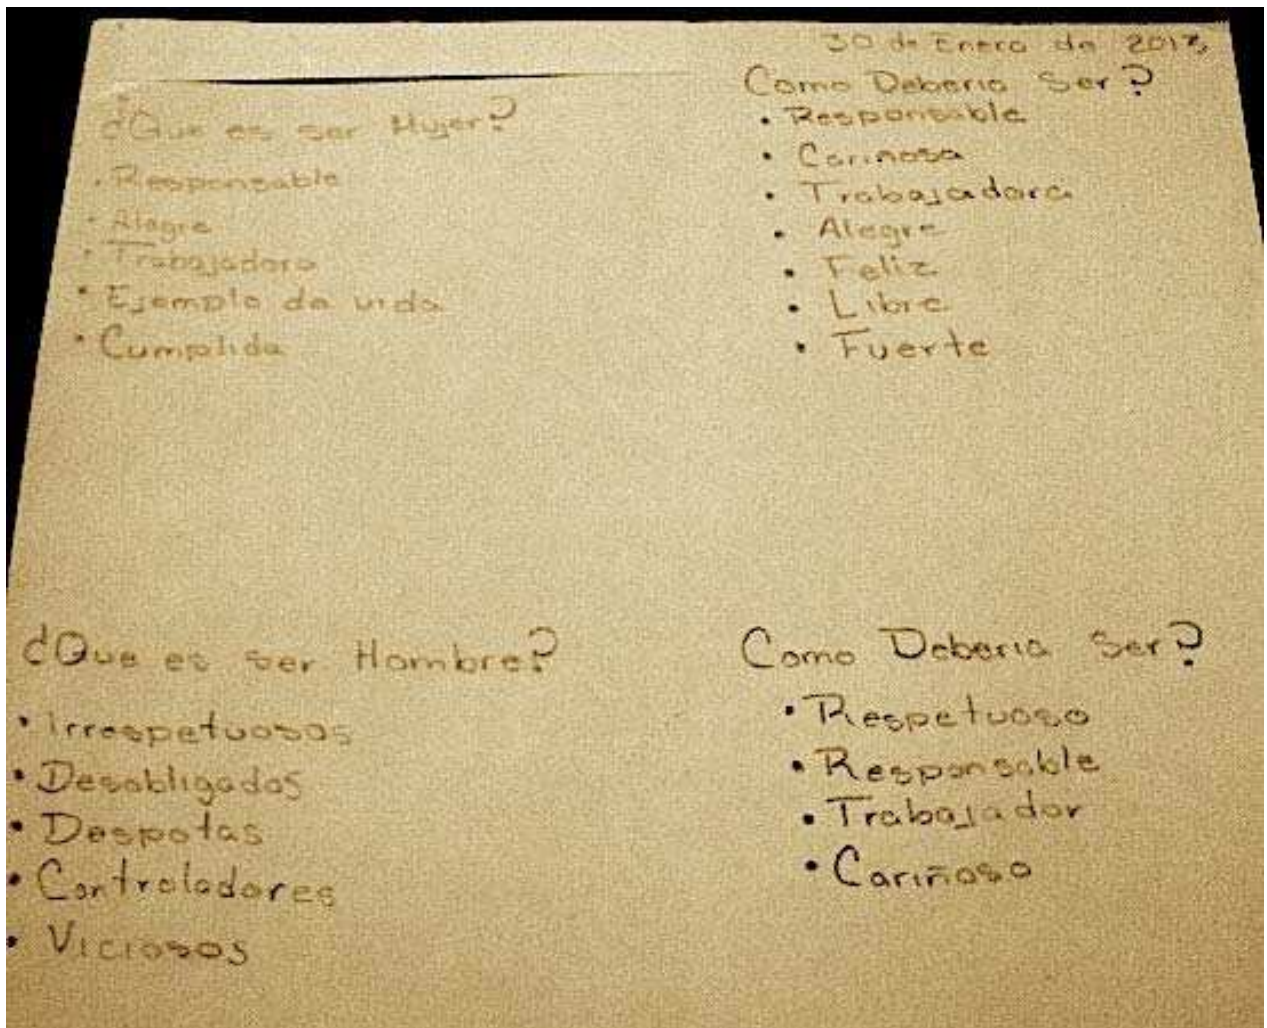 30 de Enero de 2013
¿Que es ser Mujer?
• Responsable
• Alegre
• Trabajadora
• Ejemplo de vida
• Cumplida
Como Deberia Ser?
• Responsable
• Cariñosa
• Trabajadora
• Alegre
• Feliz
• Libre
• Fuerte
¿Que es ser Hombre?
• Irrespetuosos
• Desobligados
• Despotas
• Controladores
• Viciosos
Como Deberia Ser?
• Respetuoso
• Responsable
• Trabajador
• Cariñoso